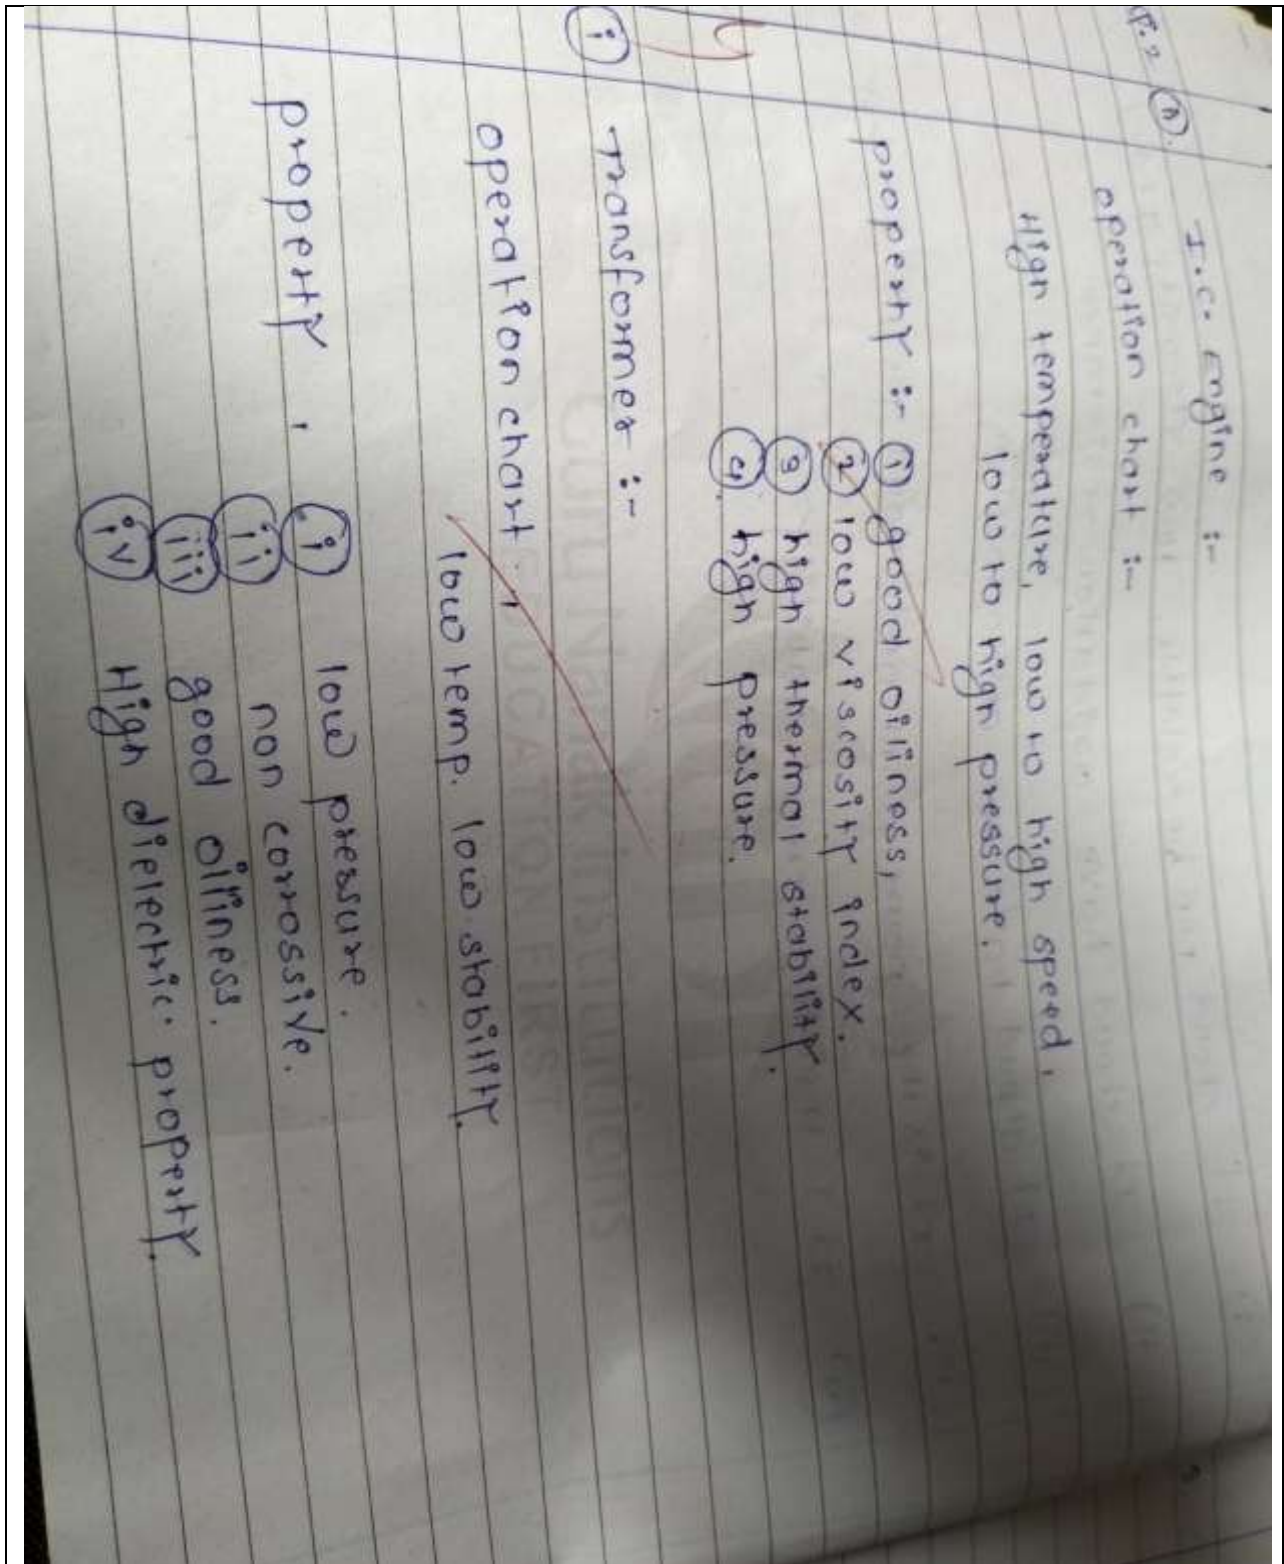 I.C. Engine :-
operation chart :-
High temperature, low to high speed,
low to high pressure.
property :- ① good oiliness,
② low viscosity index.
③ high thermal stability.
④ high pressure.
i Transformer :-
operation chart :-
low temp. low stability.
property, i low pressure.
ii non corrossive.
iii good oiliness.
iv High dielectric. property.
Guru Nanak Institutions
EDUCATION FIRST